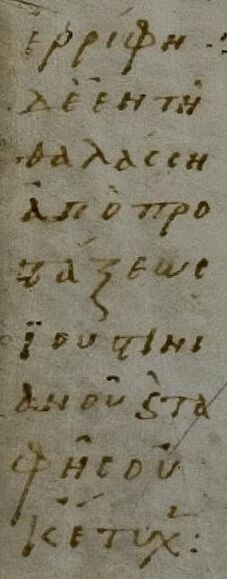 ερρίφη ·
δὲ ἐν τῆ
θαλάσση
ἀπὸ προ
στάξεως
ϊουστινι
ανοῦ ϗ τα
φῆς οὐ
κ ἔτυχ: